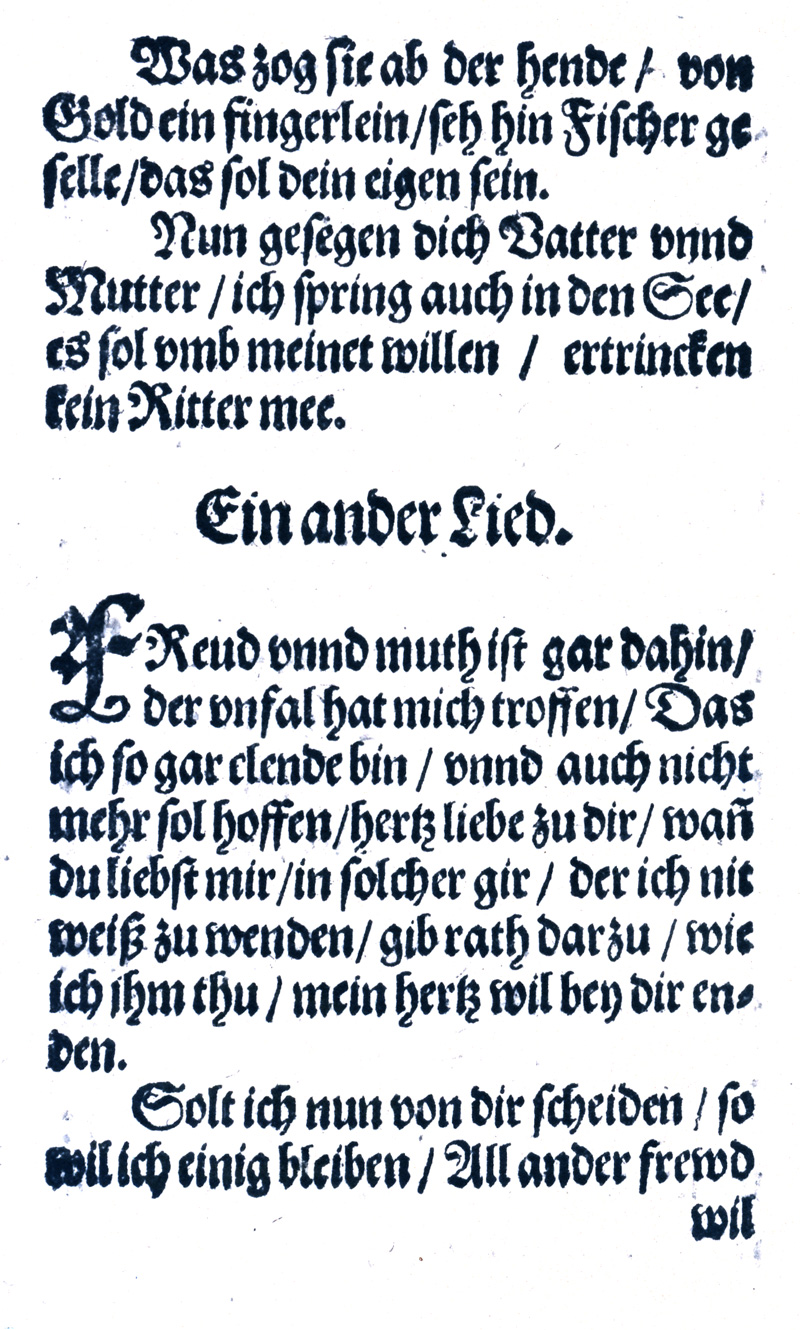 Was zog sie ab der hende / von
Gold ein fingerlein/seh hin Fischer ge
selle/das sol dein eigen sein.
Nun gesegen dich Vatter vnnd
Mutter / ich spring auch in den See/
es sol vmb meinet willen / ertrincken
kein Ritter mee.
Ein ander Lied.
FReud vnnd muth ist gar dahin/
der vnfal hat mich troffen/ Das
ich so gar elende bin / vnnd auch nicht
mehr sol hoffen/hertz liebe zu dir/ wañ
du liebst mir/in solcher gir / der ich nit
weiß zu wenden/ gib rath darzu / wie
ich jhm thu / mein hertz wil bey dir en⸗
den.
Solt ich nun von dir scheiden / so
wil ich einig bleiben / All ander frewd
wil